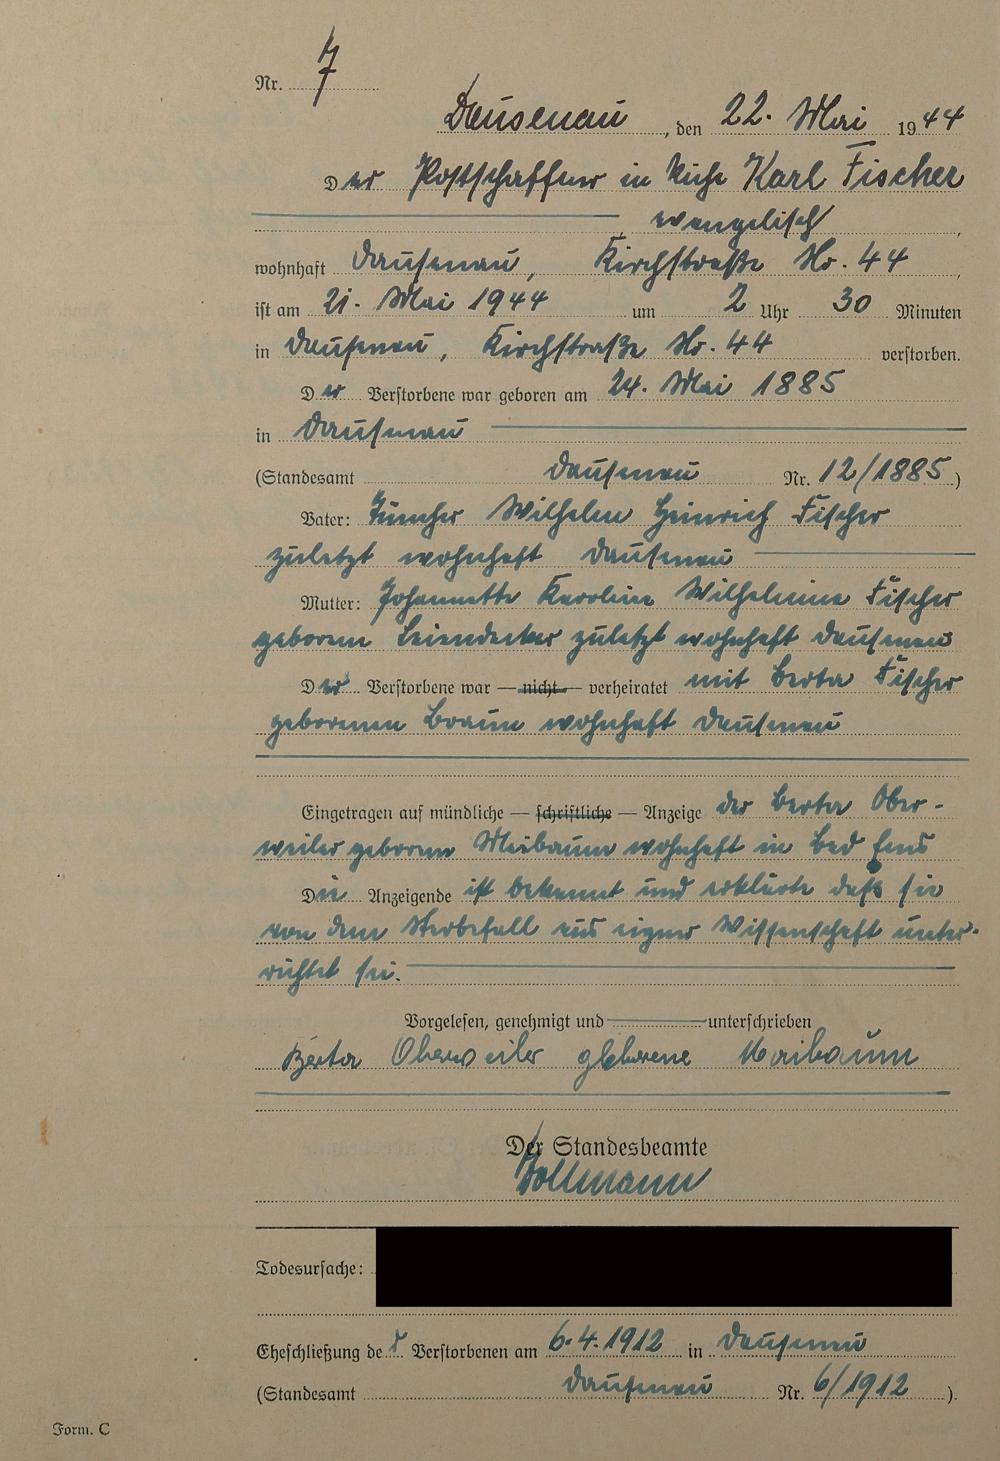 Nr. 7
Dausenau, den 22. Mai 1944
Der Postschaffner in Ruhe Karl Fischer
evangelisch,
wohnhaft Dausenau, Kirchstraße No. 44,
ist am 21. Mai 1944 um 2 Uhr 30 Minuten
in Dausenau, Kirchstraße No. 44 verstorben.
Der Verstorbene war geboren am 24. Mai 1885
in Dausenau
(Standesamt Dausenau Nr. 12/1885.)
Vater: Tüncher Wilhelm Heinrich Fischer
zuletzt wohnhaft Dausenau
Mutter: Johannette Karoline Wilhelmine Fischer
geborene Leiendecker zuletzt wohnhaft Dausenau
Der Verstorbene war — nicht — verheiratet mit Berta Fischer
geborenen Braun wohnhaft Dausenau
Eingetragen auf mündliche — schriftliche — Anzeige der Berta Ober-
weiler geborene Maibaum wohnhaft in Bad Ems
Die Anzeigende ist bekannt und erklärte daß sie
von dem Sterbefall aus eigner Wissenschaft unter-
richtet sei.
Vorgelesen, genehmigt und unterschrieben
Berta Oberweiler geborene Maibaum
Der Standesbeamte
Todesursache:
Eheschließung der Verstorbenen am 6.4.1912 in Dausenau
(Standesamt Dausenau Nr. 6/1912).
Form. C